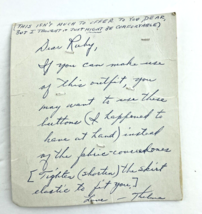 (THIS ISN'T MUCH TO OFFER TO YOU DEAR,
BUT I THOUGHT IT JUST MIGHT BE COMFORTABLE)
Dear Ruby,
If you can make use
of this outfit, you
may want to use these
buttons (I happened to
have at hand) instead
of the fabric covered ones
[Tighten (shorten) the skirt
elastic to fit you,]
Love — Thelma